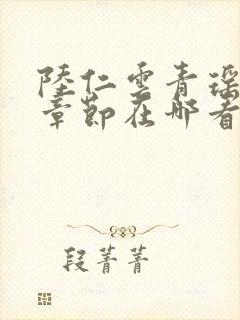 陸仁雲青瑶
章節在哪看
段菁菁